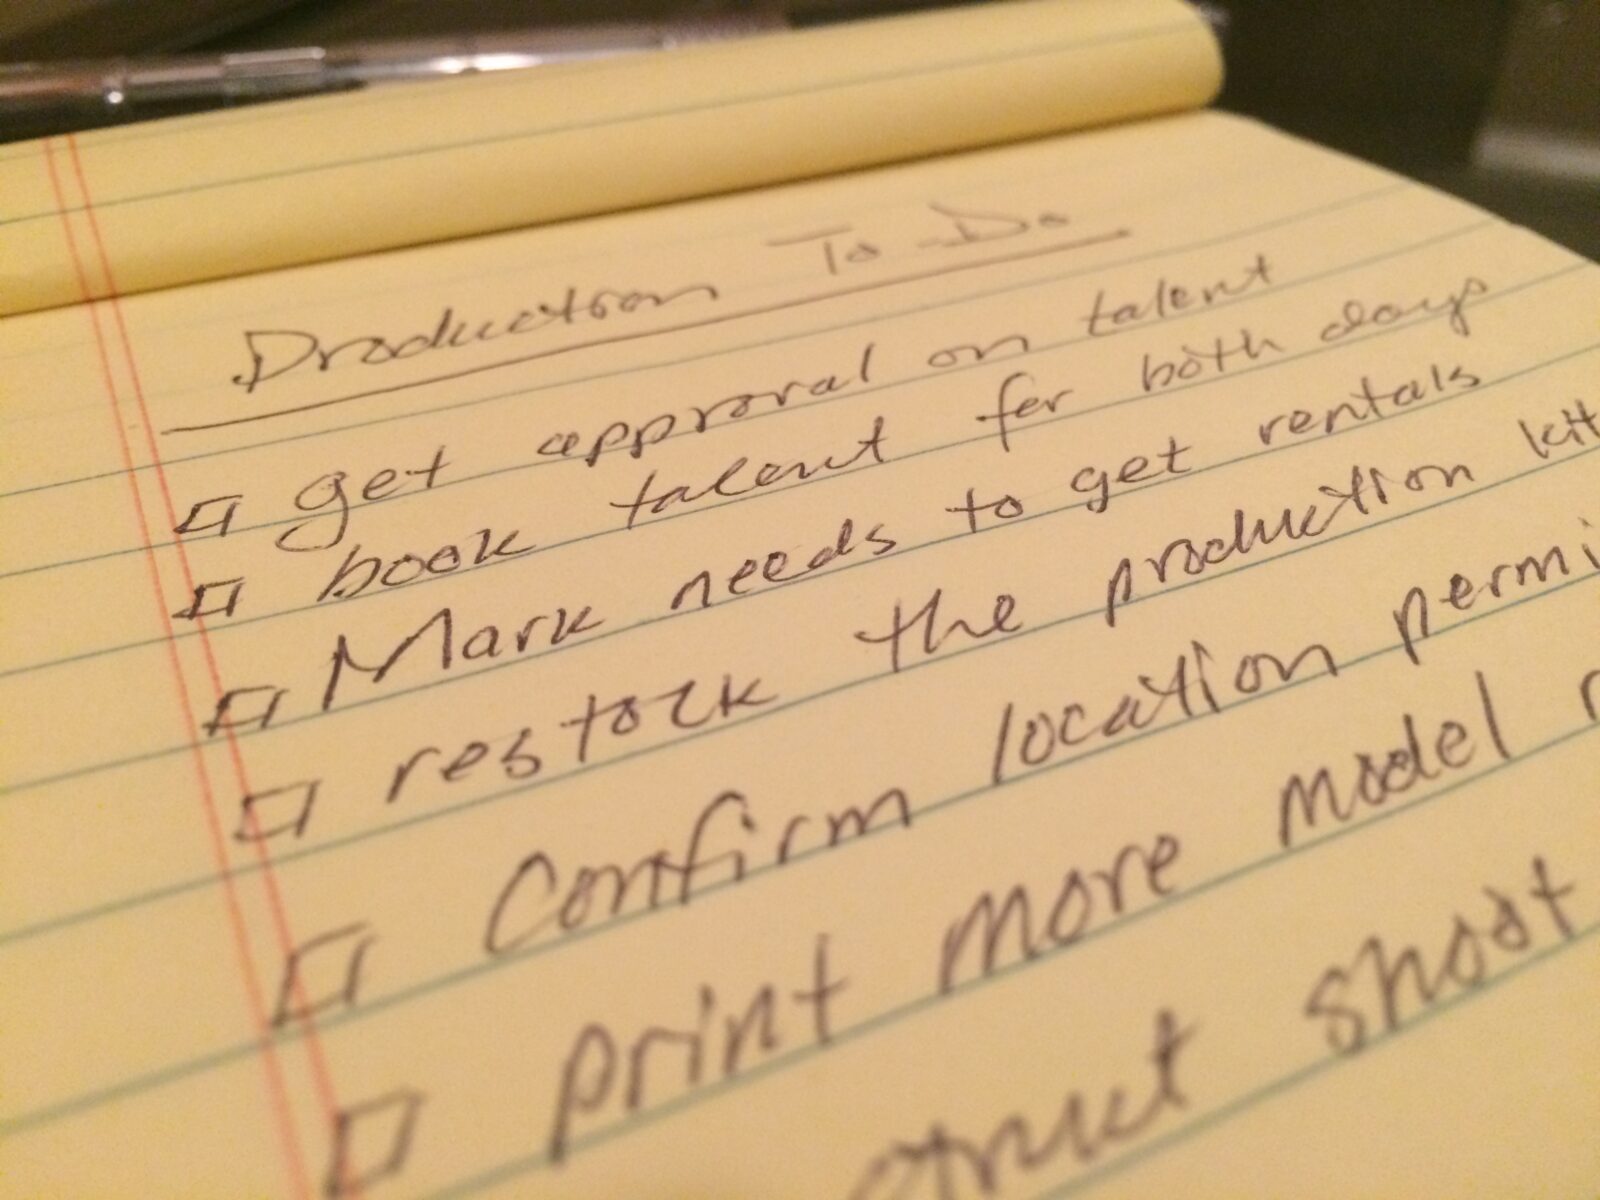 Production To-Do
get approval on talent
book talent for both days
Mark needs to get rentals
restock the production kit
Confirm location permi
print more model r
shoot